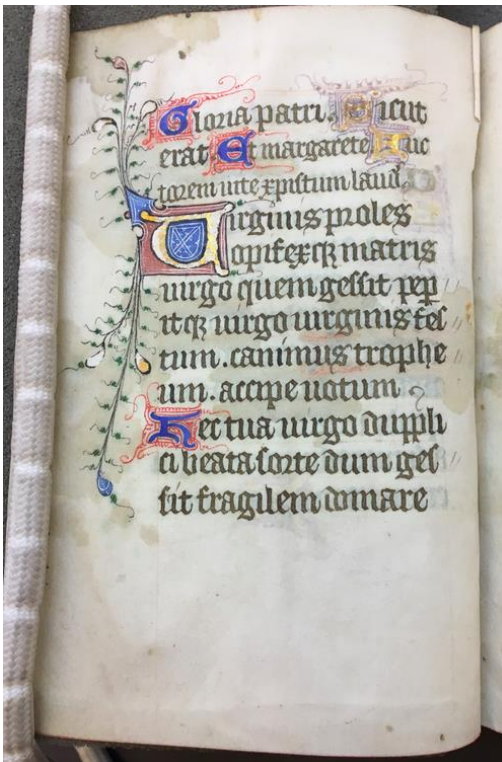 Gloria patri. Sicut
erat Et margarete Auc
torem uite xpistum laud
Uirginis proles
opifexqꝫ matris
uirgo quem gessit pep
itqꝫ uirgo uirginis fes
tum. canimus trophe
um. accipe uotum
Hec tua uirgo duppli
ci beata sorte dum ges
sit fragilem domare